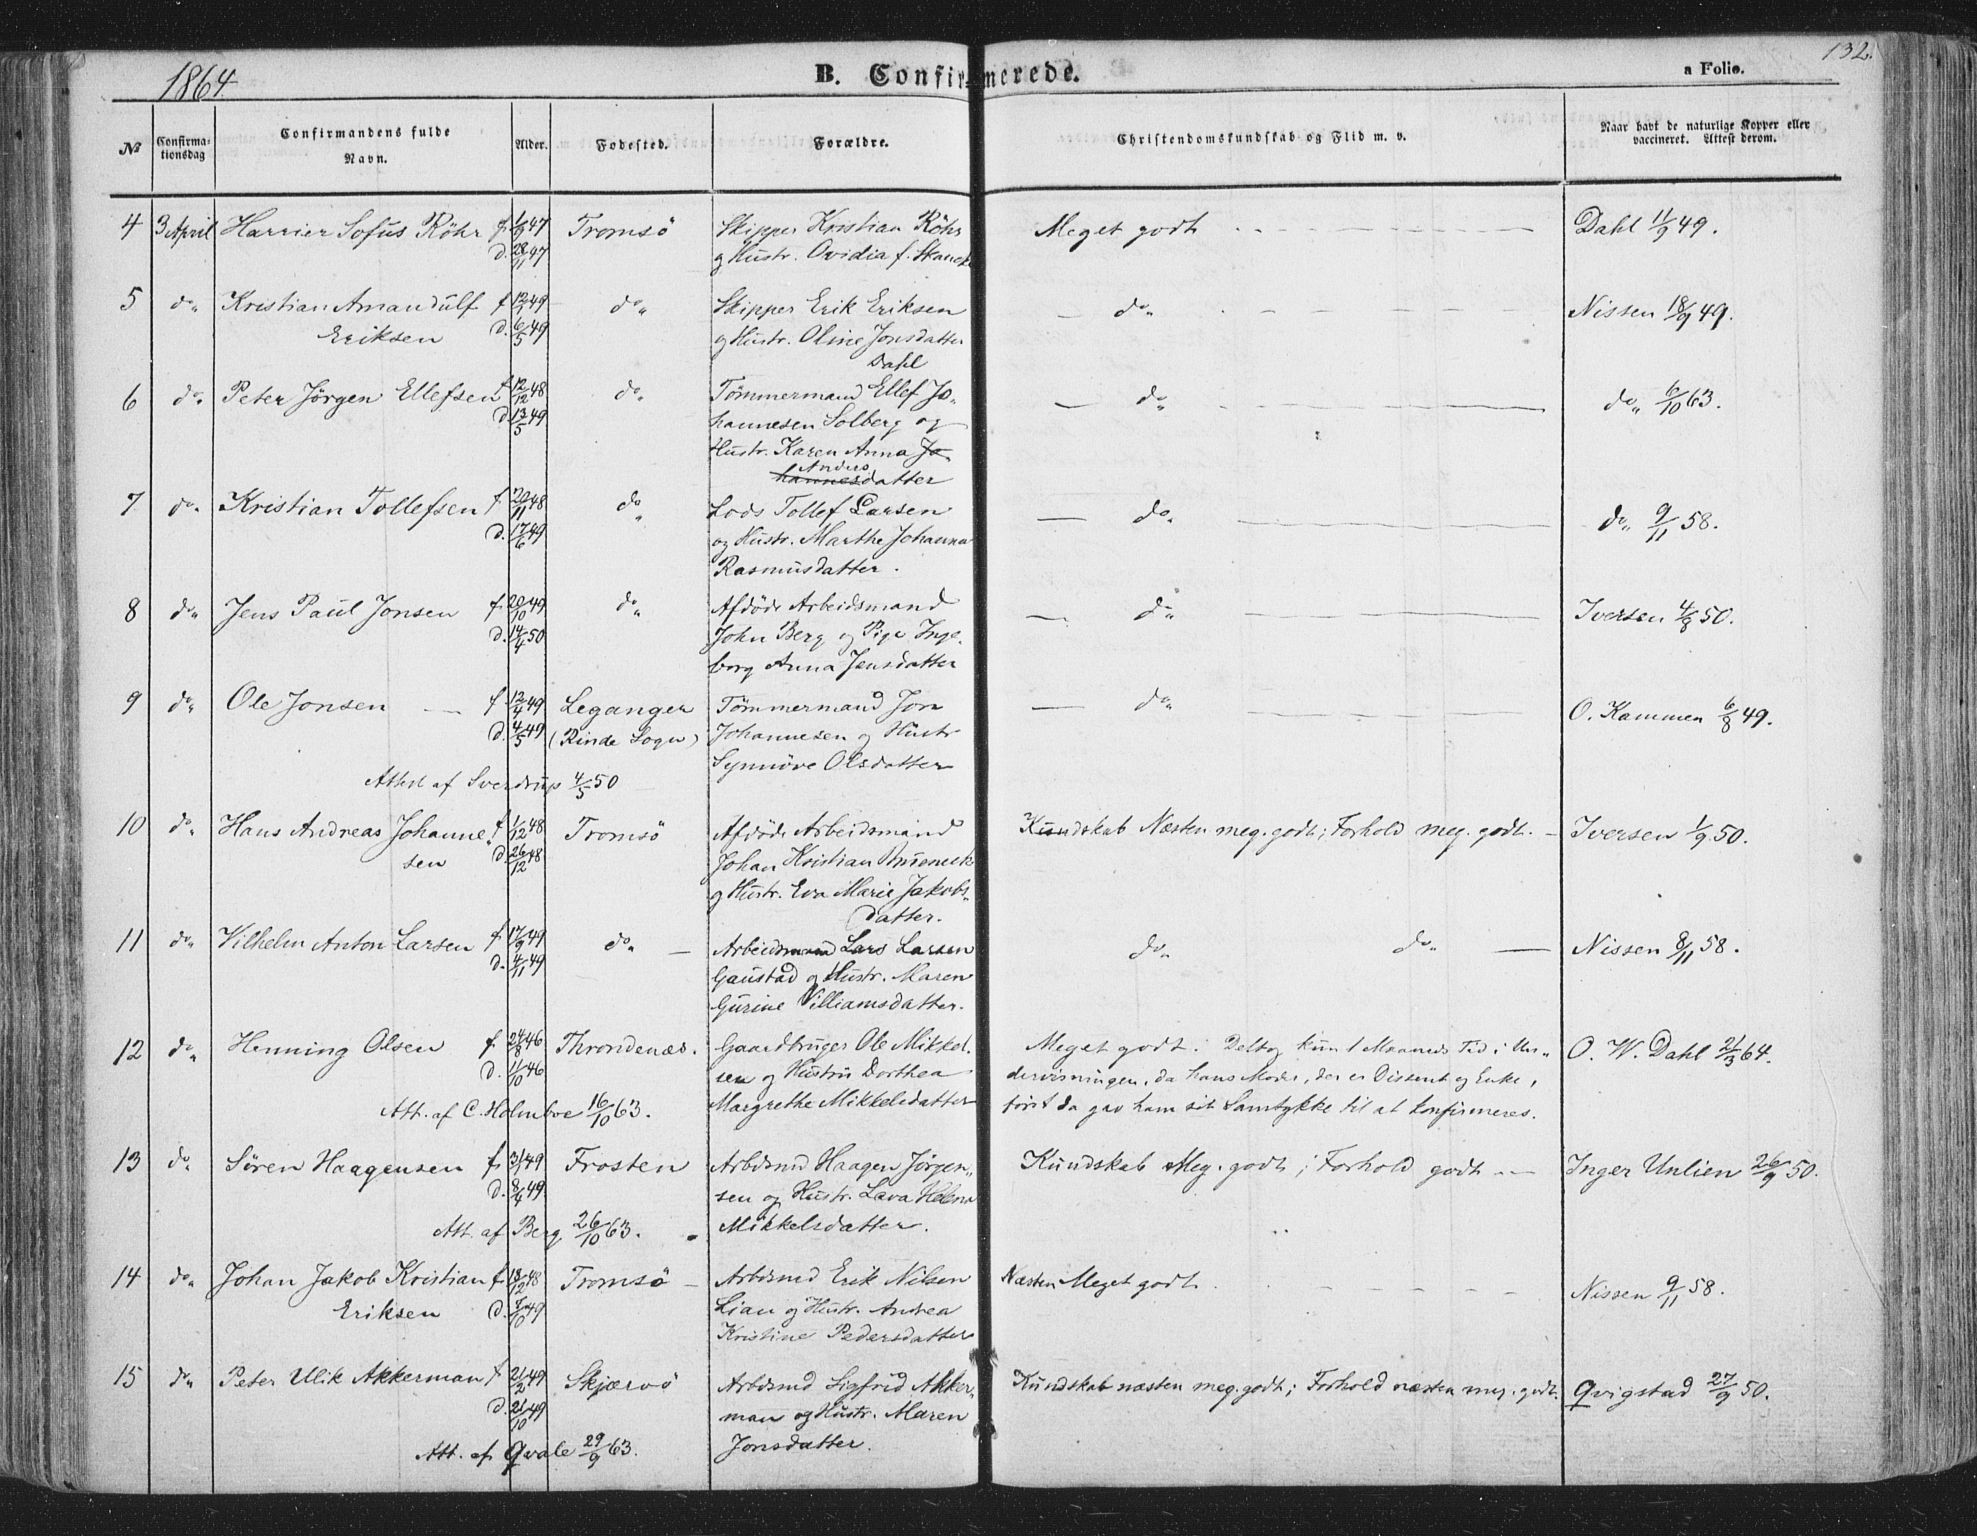 1864.
B. Confirmerede.
a Folio.
132.
№
Confirma-
tionsdag
Confirmandens fulde
Navn.
Alder.
Fødested.
Forældre.
Christendomskundskab og Flid m. v.
Naar havt de naturlige Kopper eller
vaccineret. Attest derom.
4 3 April Harrier Sofus Röhr f. 1/9 47 Tromsö Skipper Kristian Röhr Meget godt Dahl 11/9 49.
d. 28/11 47 og Hustr. Ovidia f. Skancke
5 do„ Kristian Amandulf f 12/2 49 do„ Skipper Erik Eriksen do„ Nissen 18/9 49.
Eriksen d. 6/5 49 og Hustr. Oline Jonsdatter
Dahl
6 do„ Peter Jörgen Ellefsen f 12/12 48 do„ Tömmermand Ellef Jo- do„ do„ 6/10 63.
d. 13/5 49 hannesen Solberg og
Hustr. Karen Anna Jo-
Anders
hannesdatter
7 do„ Kristian Tollefsen f 20/11 48 do„ Lods Tollef Larsen do„ do„ 9/11 58.
d. 17/6 49 og Hustr. Marthe Johanna
Rasmusdatter.
8 do„ Jens Paul Jonsen f. 20/10 49 do„ Afdöde Arbeidsmand do„ Iversen 4/8 50.
d. 14/4 50 John Berg og Pige Inge-
borg Anna Jensdatter
9 do„ Ole Jonsen f. 12/4 49 Leganger Tömmermand Jon do„ O. Kammen 6/8 49.
d. 4/5 49 (Rinde Sogn) Johannesen og Hustr
Synnöve Olsdatter
Attest af Sverdrup 4/5 50
10 do„ Hans Andreas Johanne- f 1/12 48 Tromsö Afdöde Arbeidsmand Kundskab Næsten meg. godt; Forhold meg. godt. Iversen 1/9 50.
sen d. 26/12 48 Johan Kristian
og Hustr. Eva Marie Jakobs-
datter.
11 do„ Vilhelm Anton Larsen f 17/9 49 do„ Arbeidsmand Lars Larsen do„ do„ Nissen 8/11 58.
d. 4/11 49 Gaustad og Hustr. Maren
Gurine Villiamsdatter.
12 do„ Henning Olsen f. 24/8 46 Throndenæs. Gaardbruger Ole Mikkel- Meget godt. Deltog kun 1 Maaneds Tid i Un- O. W. Dahl 21/3 64.
d. 11/10 46 sen og Hustru Dorthea dervisningen, da hans Moder, der er Dissent og Enke,
Att. af C. Holmboe 16/10 63. Margrethe Mikkelsdatter först da gav ham sit Samtykke til at konfirmeres.
13 do„ Sören Haagensen f. 3/1 49 Frosten Arbdsmd Haagen Jörgen- Kundskab Meg. godt; Forhold godt Inger Unlien 26/9 50.
d. 8/4 49. sen og Hustr. Lava Helena
Att. af Berg 26/10 63. Mikkelsdatter.
14 do„ Johan Jakob Kristian f 18/12 48 Tromsö Arbdsmd Erik Nilsen Næsten Meget godt. Nissen 9/11 58.
Eriksen d. 7/10 49 Lian og Hustr. Andrea
Kristine Pedersdatter
15 do„ Peter Ulik Akkerman f 21/2 49 Skjærvö Arbdsmd Sigfrid Akker- Kundskab næsten meg. godt; Forhold næsten meg. godt. Qvigstad 27/9 50.
d. 21/10 49 man og Hustr. Maren
Att. af Qvale 29/9 63. Jonsdatter.